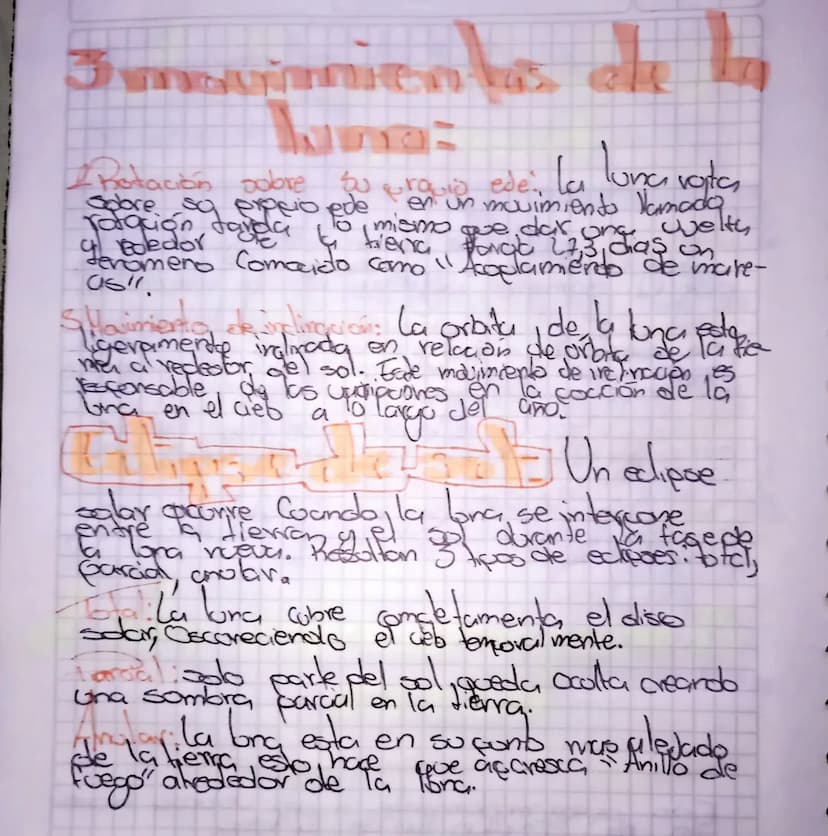 3 movimientos de la
luna:
1 Rotación sobre su propio ede: La luna rota
sobre su propio ede en un movimiento llamada
rotación tarda lo mismo que dar una vuelta
al rededor de la tierra 27,3 días un
fenómeno Conocido como "Acoplamiento de mare-
as".
Movimiento de inclinación: La orbita de la luna esta
ligeramente inclinada en relación de orbita de la tie-
rra al rededor del sol. Este movimiento de inclinación es
responsable de las variaciones en la posición de la
luna en el cielo a lo largo del año.
Eclipse de sol: Un eclipse
solar ocurre Cuando la luna se interpone
entre la tierra y el sol durante la fase de
la luna nueva. Resultan 3 tipos de eclipses: total,
parcial, anular.
Total: La luna cubre completamenta el disco
solar, Oscoreciendo el cielo temporalmente.
Parcial: solo parte del sol queda oculta creando
una sombra parcial en la tierra.
Anular: La luna esta en su punto mas alejado
de la tierra esto hace que aparesca "Anillo de
fuego" alrededor de la luna.